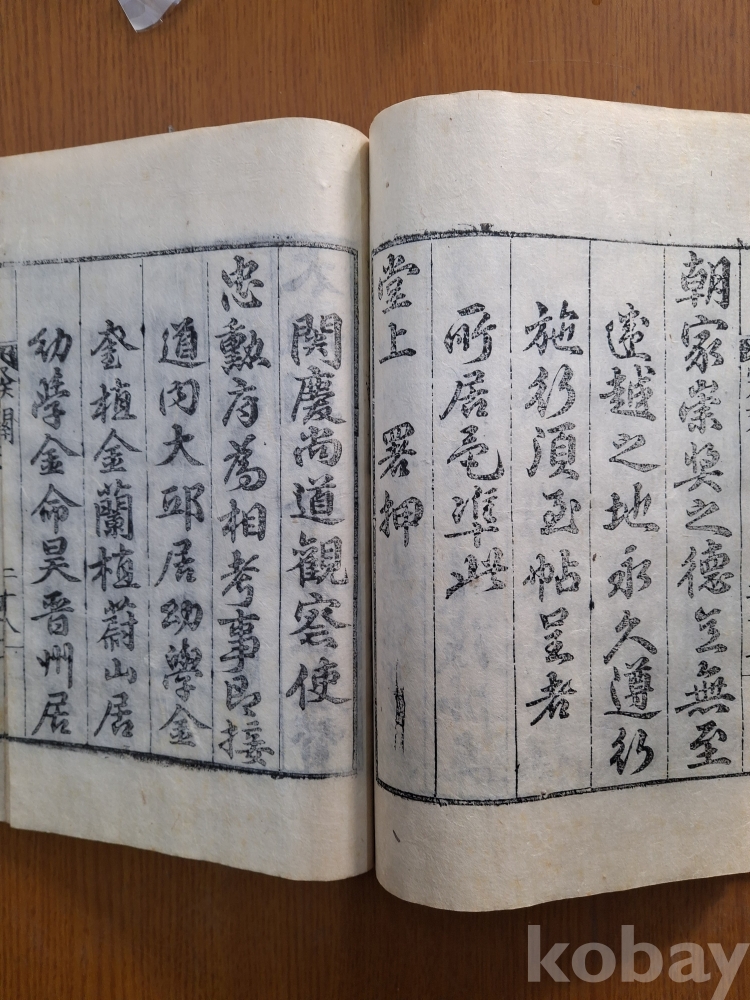 朝家崇奬之德意無至
違越之地永久遵行
施行須至帖呈者
所居邑準此
堂上 署押
関慶尚道觀察使
忠勲府為相考事即接
道内大邱居幼學金
奎植金蘭植蔚山居
幼學金命昊晋州居
kobay